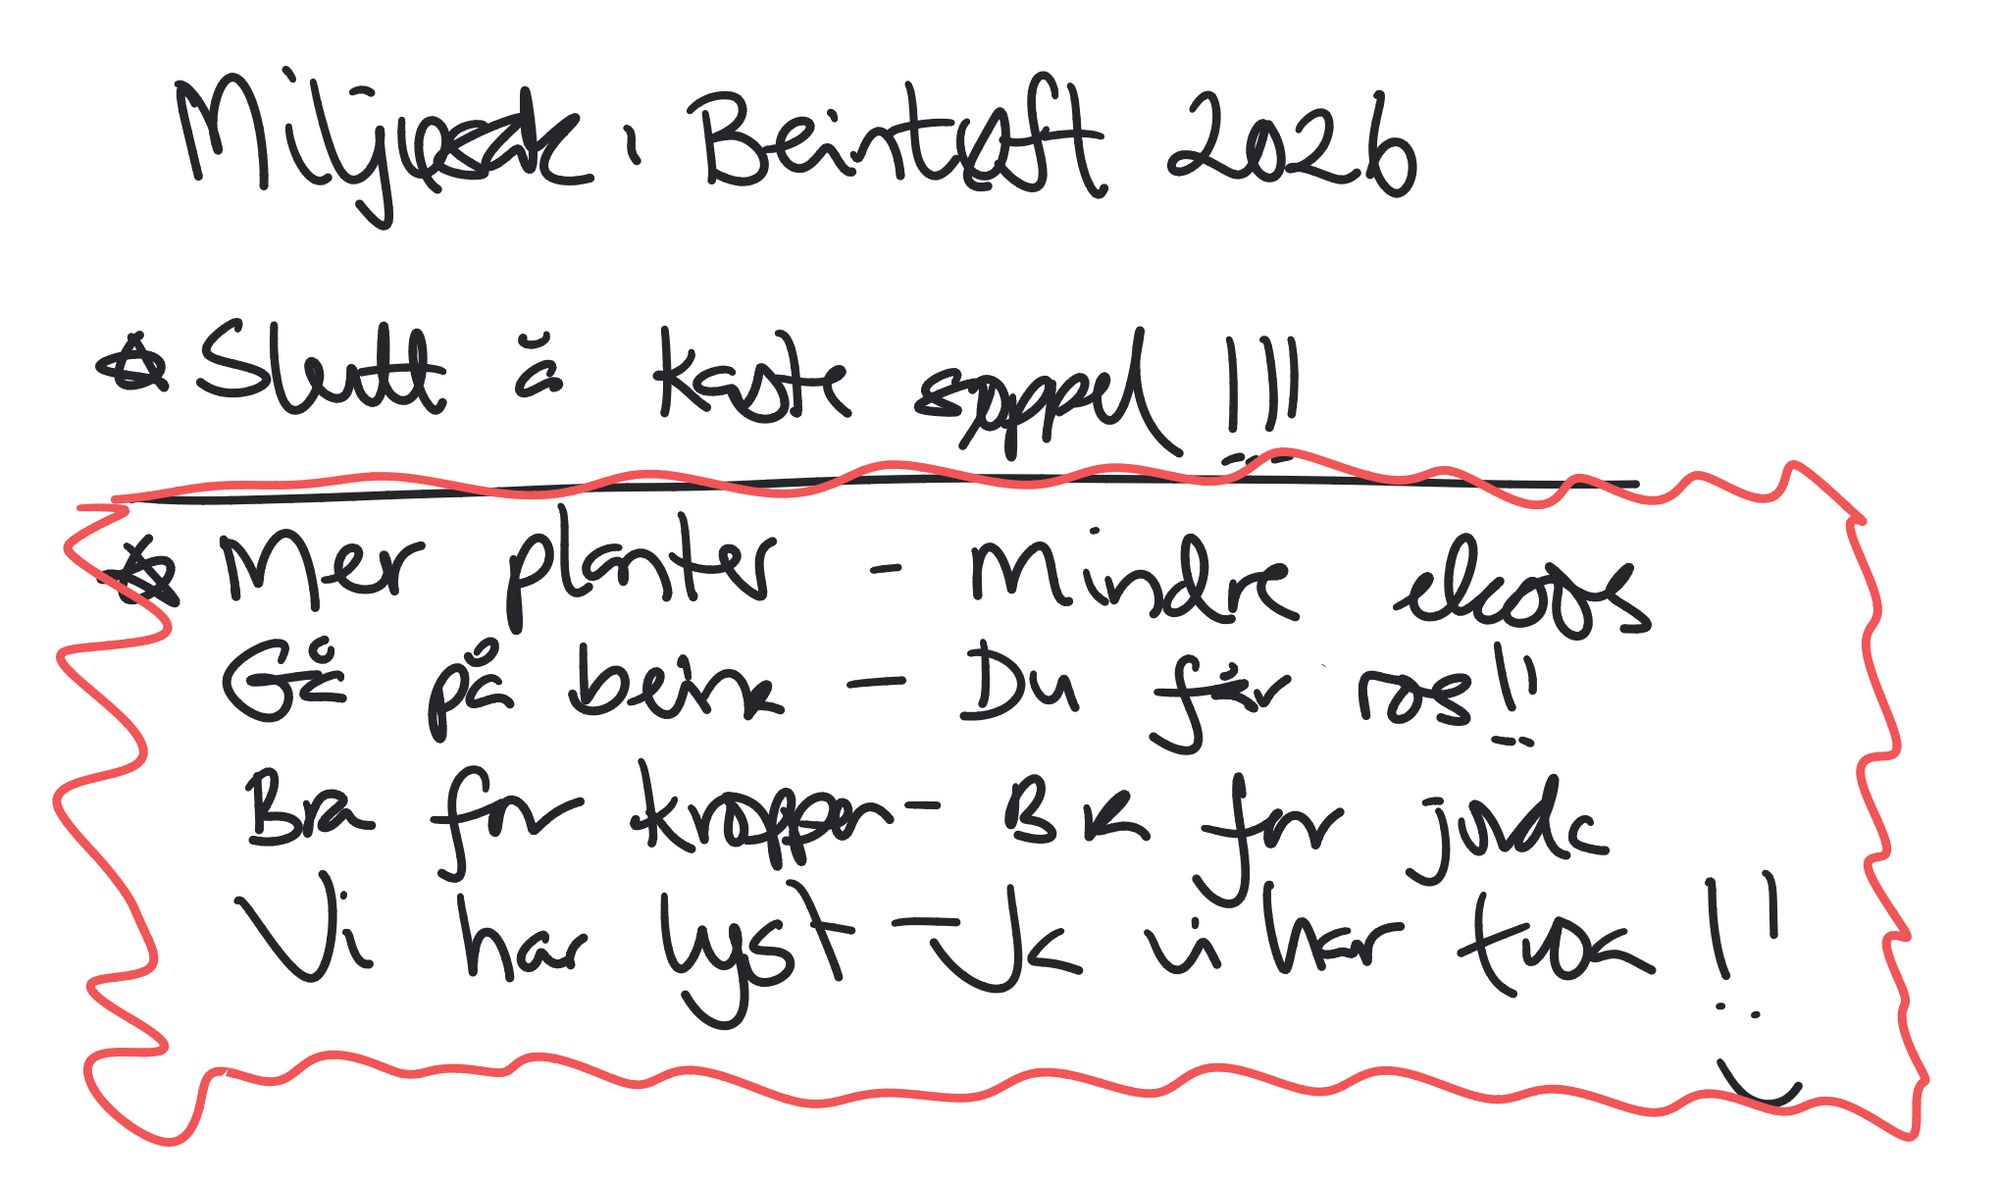 Miljøsak: Beintøft 2026
☆ Slutt å kaste søppel !!!
☆ Mer planter - Mindre eksos
Gå på beina - Du får ros!!
Bra for kroppen - Bra for jorda
Vi har lyst - Ja vi har troa !!